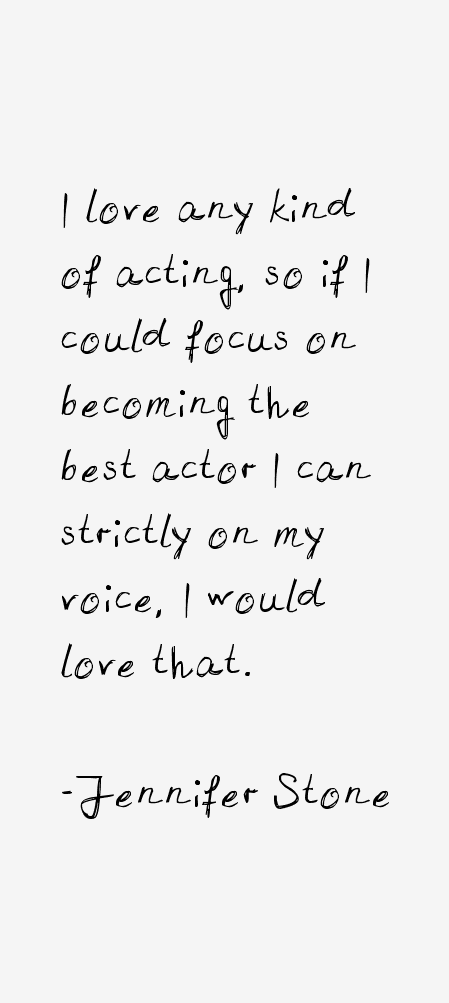 I love any kind
of acting, so if I
could focus on
becoming the
best actor I can
strictly on my
voice, I would
love that.
-Jennifer Stone